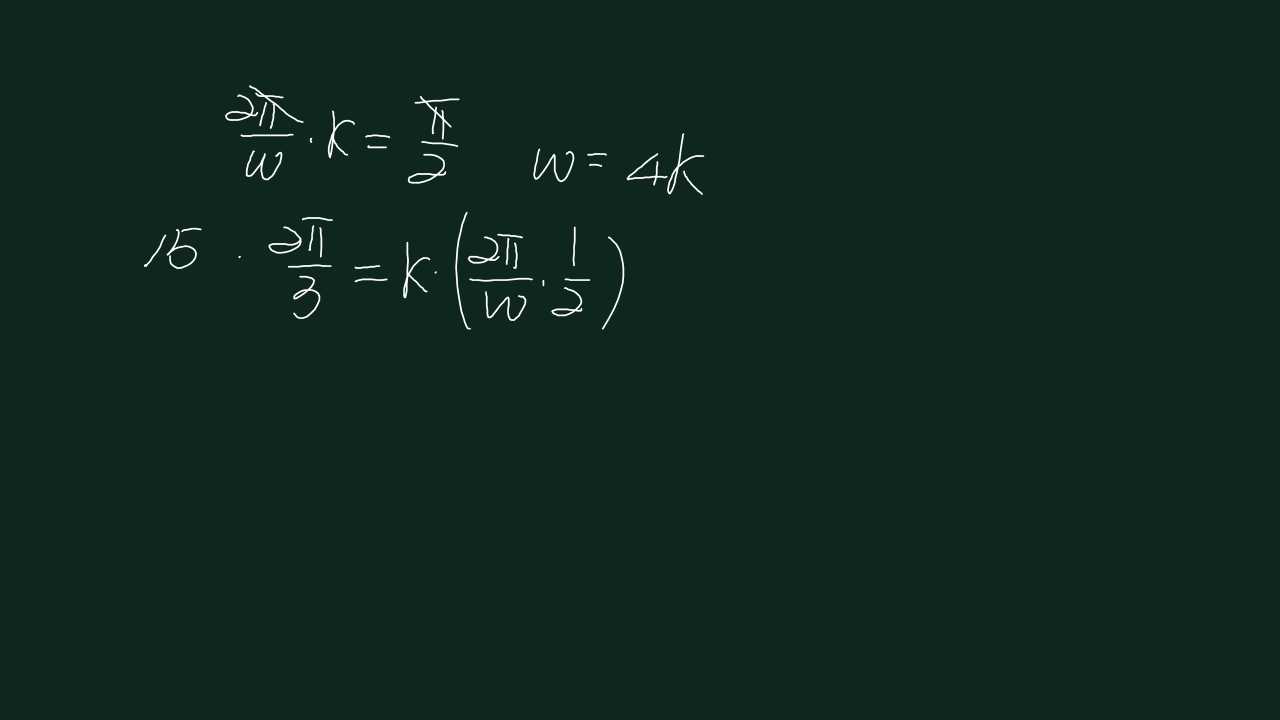 2π/w · k = π/2   w = 4k
15 · 2π/3 = k · (2π/w · 1/2)